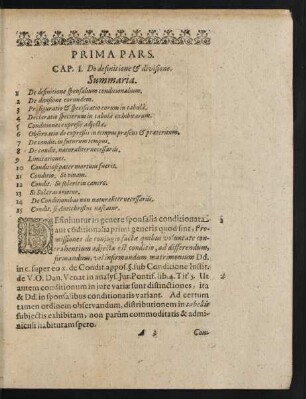 PRIMA PARS.
CAP. I. De definitione & divisione.
Summaria.
1 De definitione sponsalium conditionalium.
2 De divisione eorundem.
3 Prefiguratio & specificatio earum in tabula,
4 Declaratio specierum in tabula exhibitarum.
5 Conditiones expresse adjectæ.
6 Observatio de expressis in tempus præsens & præteritum.
7 De condit. in futurum tempus,
8 De condit. naturaliter necessariis,
9 Limitationes.
10 Conditio si pater mortuus fuerit.
11 Conditio. Si vivam.
12 Condit. Si sol erit in cancro.
13 Si Sol cras orietur,
14 De Conditionibus non naturaliter necessariis.
15 Condit. si Antichristus nascatur.
DEfiniuntur in genere sponsalia conditionata
aut cõditionalia primi generis quod sint, Pro-
missiones de conjugio facta quibus voluntate con-
trahentium adjecta est conditio, ad differendum,
firmandum, vel infirmandum matrimonium Dd.
in c. super eo x. de Condit appos. §. sub Conditione Instit.
de V. O. Dan. Venat in analys. Jur. Pontif. lib. 4. Tit. 5. Ut
autem conditionum in jure variæ sunt distinctiones, ita
& Dd. in sponsalibus conditionatis variant. Ad certum
tamen ordinem observandum, distributionem in tabellis
subjectis exhibitam, non parùm commoditatis & admi-
niculi habituram spero.
A 3 Con-